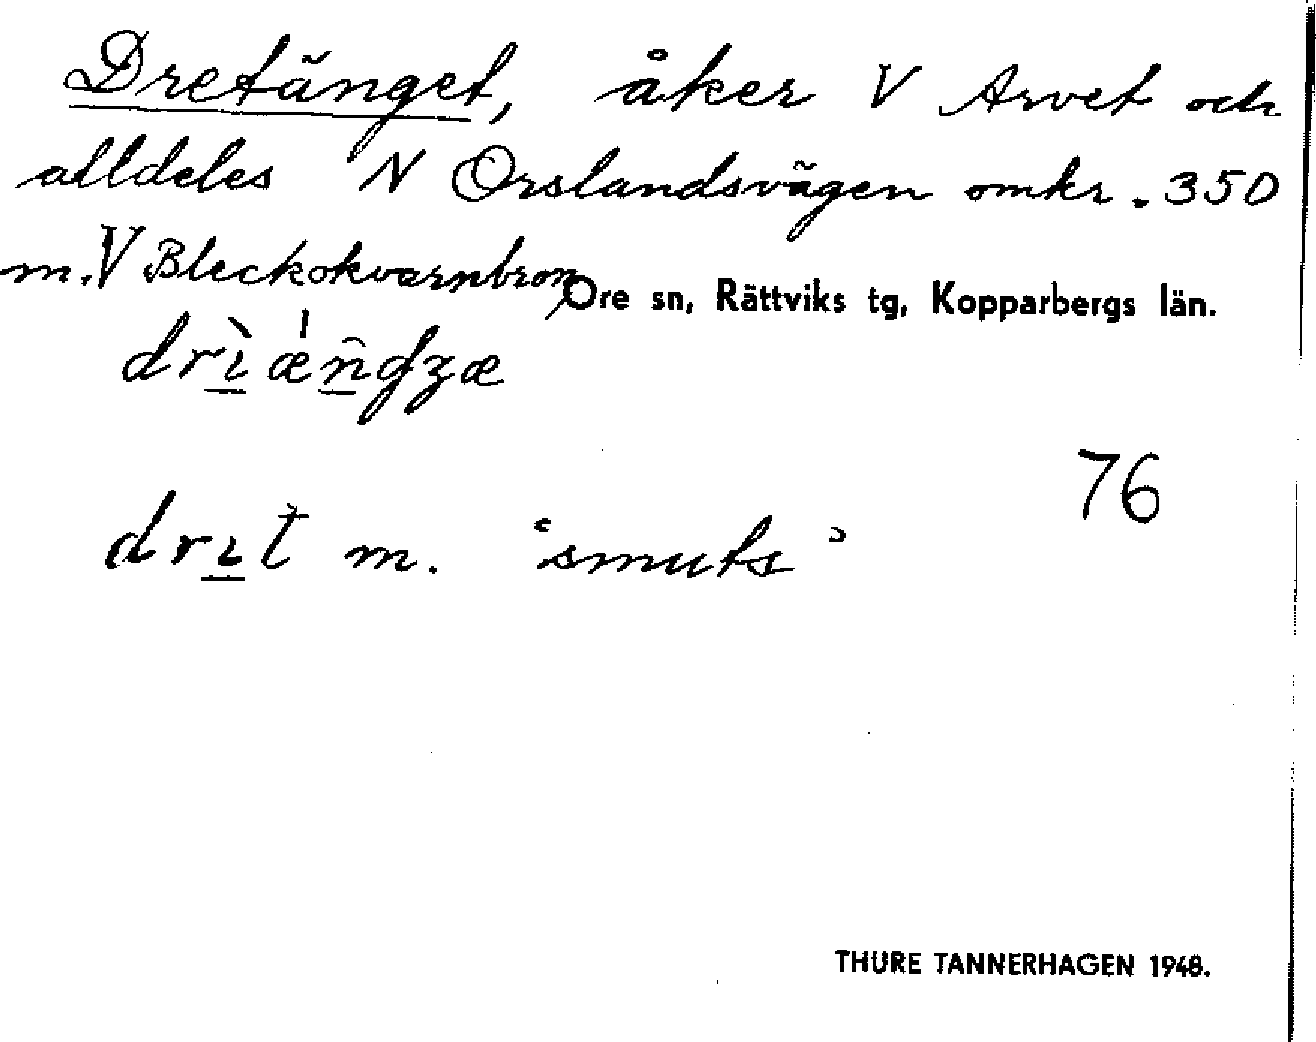 Dretänget, åker V Arvet och
alldeles N Orslandsvägen omkr. 350
m. V Bleckokvarnbron
Ore sn, Rättviks tg, Kopparbergs län.
76
drıt m. ‘smuts’
THURE TANNERHAGEN 1948.